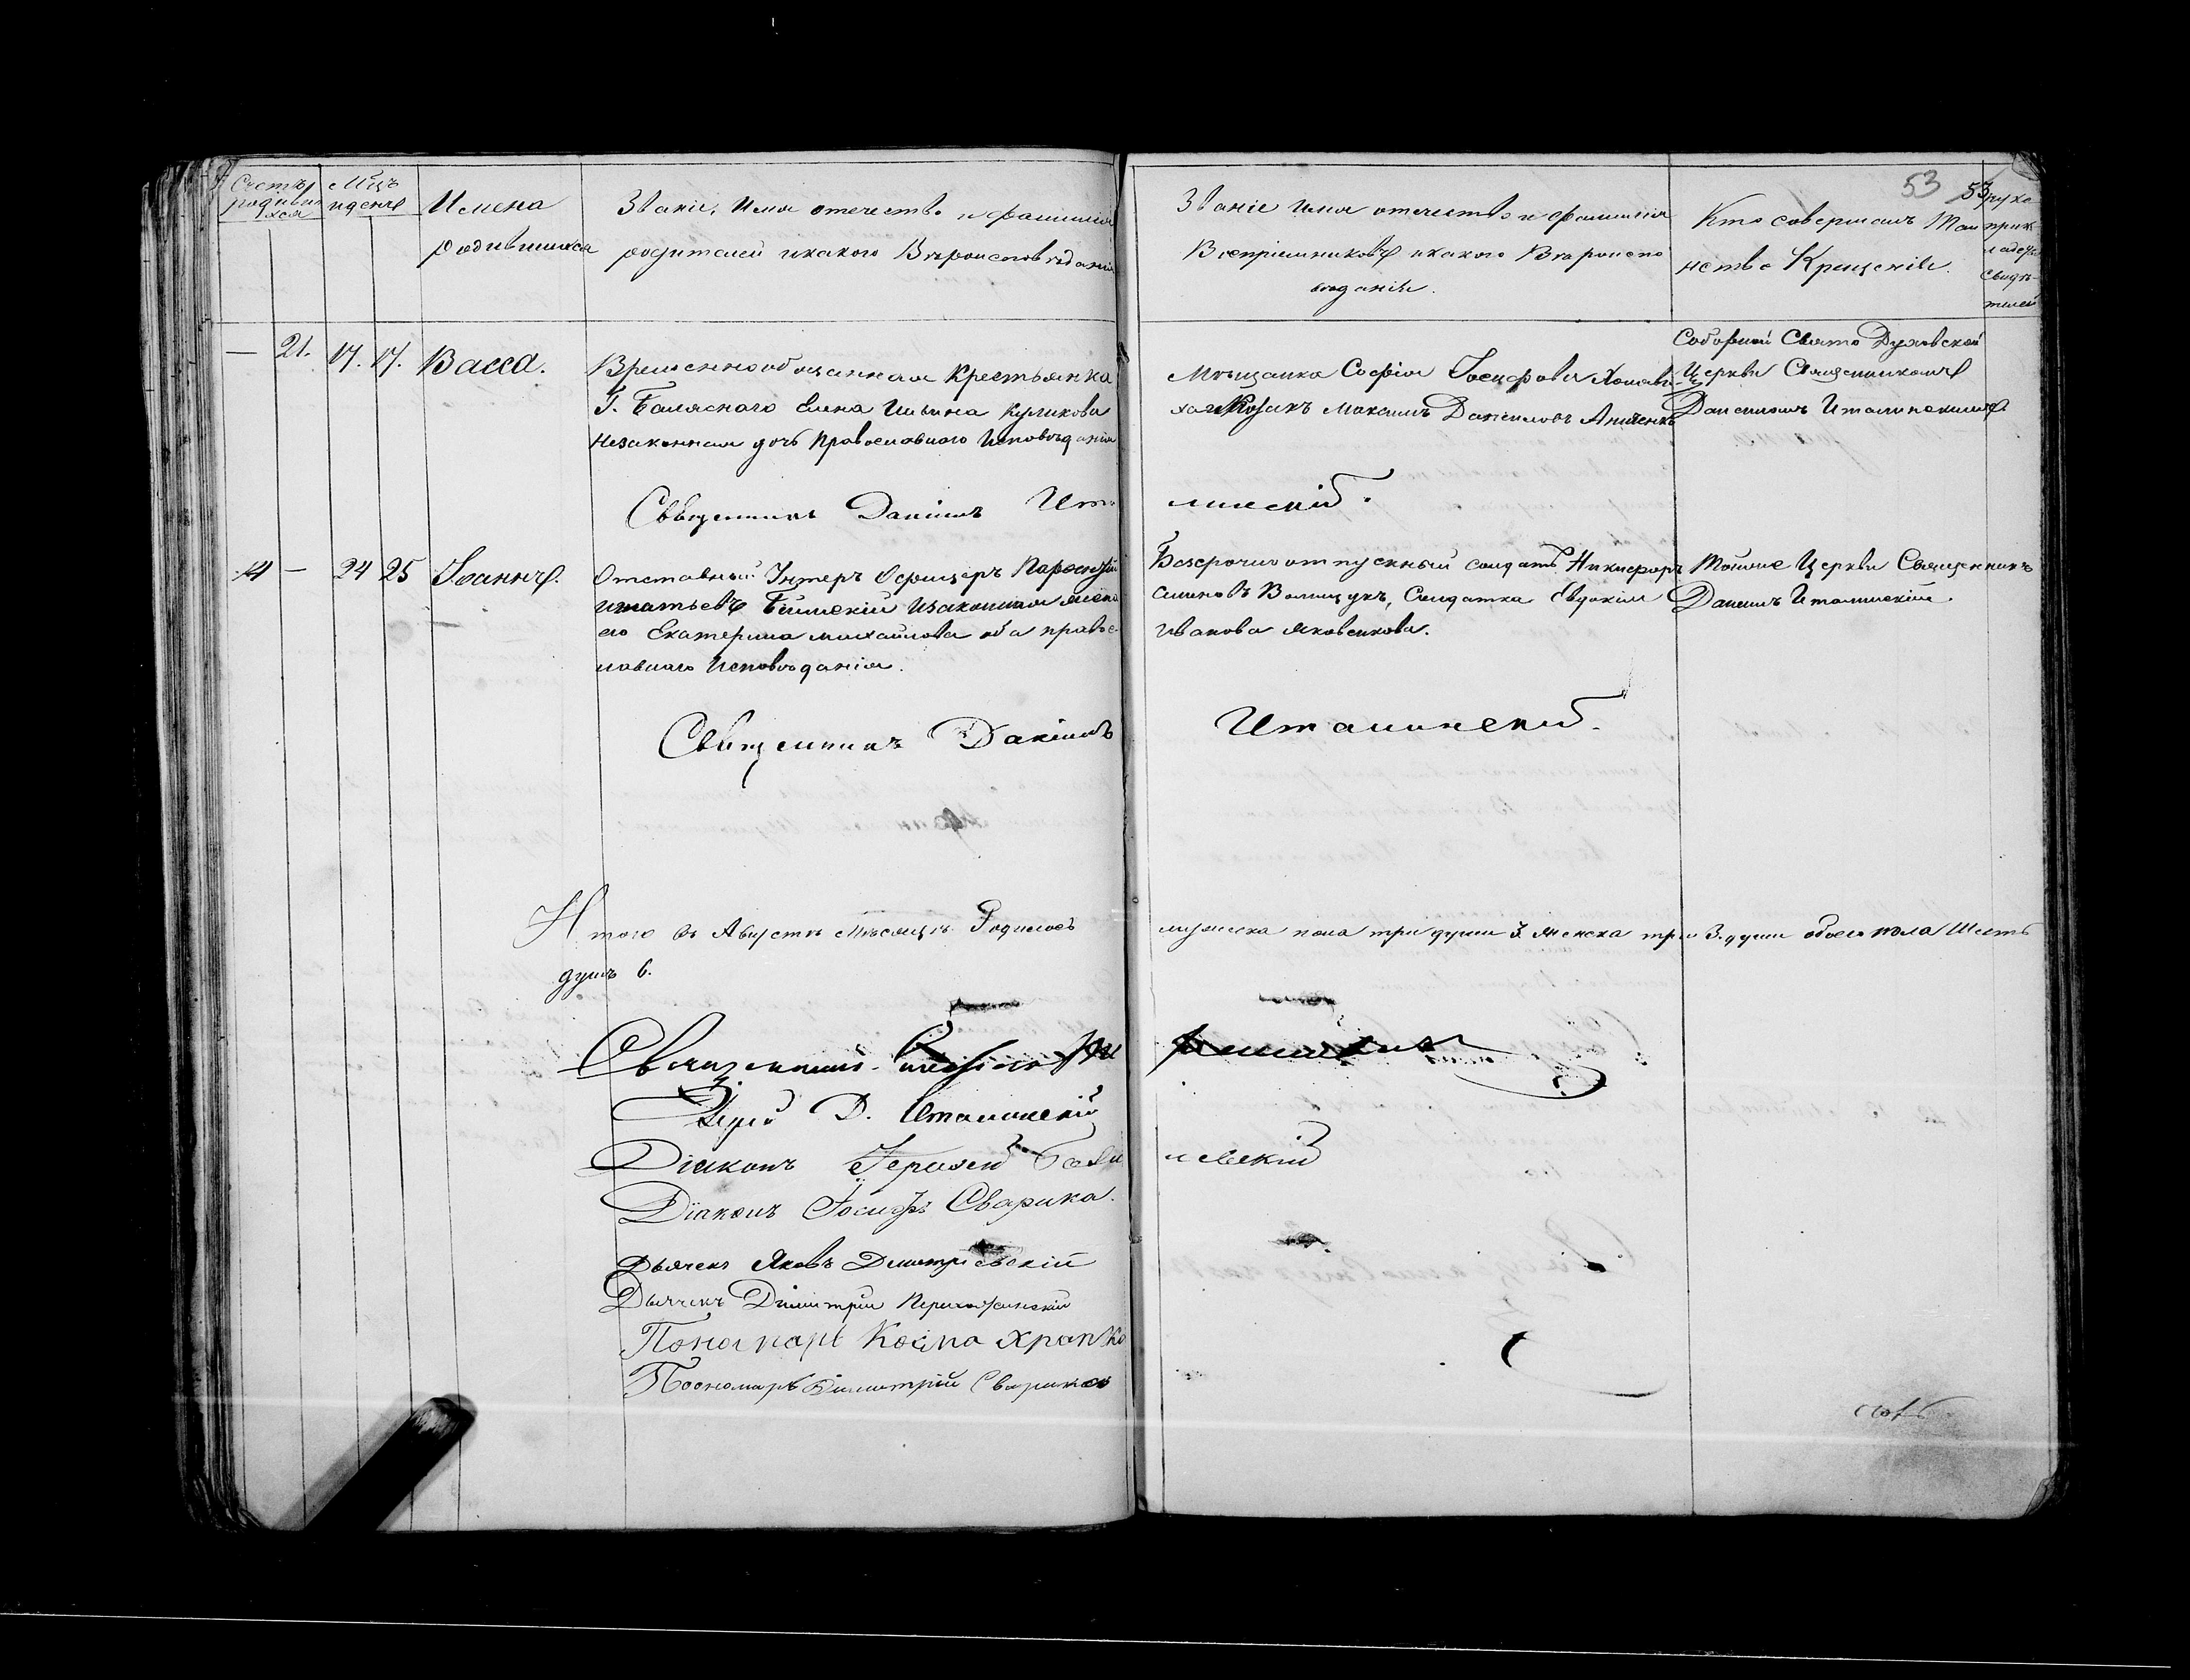 53 53
Счетъ родившихся
Мцъ и день
Имена
родившихся
Званіе, Имя отечество и фамилія
родителей и какого Вѣроисповѣданія
Званіе имя отечество и фамилія
Воспріемниковъ и какого Вѣроиспо
вѣданія.
Кто совершалъ Таи
нство Крещенія.
рука
прик
ладст
свидѣ-
телей
— 21. 17. 17. Васса.
Временнообязанная Крестьянка
Г. Баляснаго Елена Ильина Куликова
незаконная дочь православнаго Исповѣданія
Мѣщанка Софія Іосифова
Козакъ Максимъ Даниловъ
Соборной Свято Духовской
Церкви Священникомъ
Даніиломъ Италинскимъ
Священникъ Даніилъ Ита
линскій.
14 — 24 25 Іоаннъ.
Отставный Унтеръ Офицеръ
Игнатьевъ и законная жена
его Екатерина Михайлова оба правос
лавнаго Исповѣданія.
Безсрочно отпускный солдатъ Никифоръ
Волищукъ, Солдатка Евдокія
Иванова Яковенкова.
Тойже Церкви Священникъ
Даніилъ Италинскій.
Священникъ Даніилъ
Италинскій.
Итого въ Августѣ мѣсяцѣ Родилось
мужеска пола три души 3. женска три 3. души обоего пола шесть
душъ 6.
Священникъ
Іерей Д. Италинскій
Діаконъ
левскій
Діаконъ Іосифъ Сварика.
Дьячекъ Яковъ Дмитріевскій
Дьячекъ Димитрій
Пономарь Косма Храпко
Пономарь Димитрій Сварика